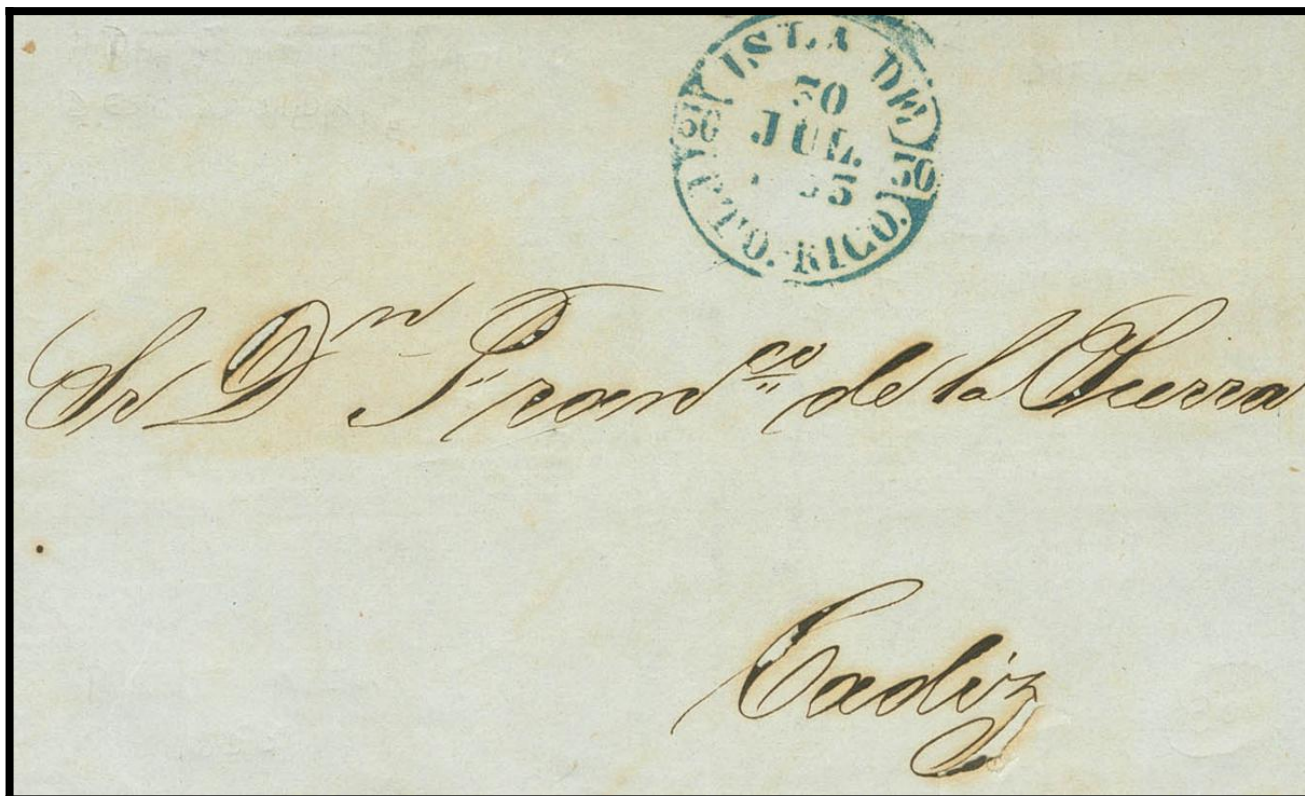 ISLA DE
30
JUL
PTO. RICO.
50
50
Sr Dn Franco de la Sierra
Cadiz